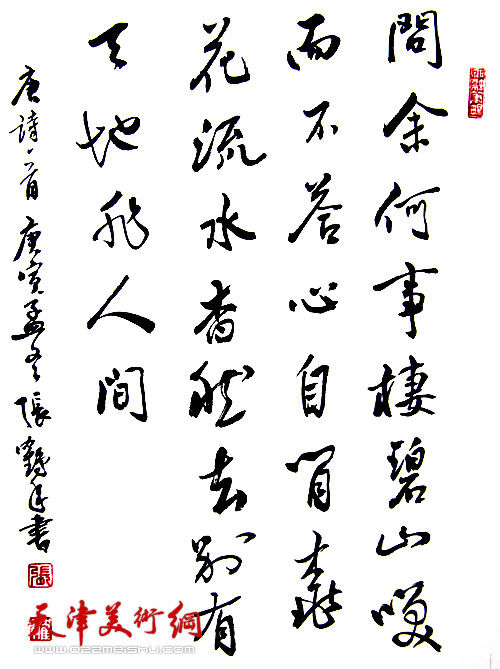 問余何事棲碧山咲
而不答心自閒桃
花流水杳然去別有
天地非人間
唐詩一首 庚寅孟冬 張鶴年書
張
天津美術網
www.022meishu.com